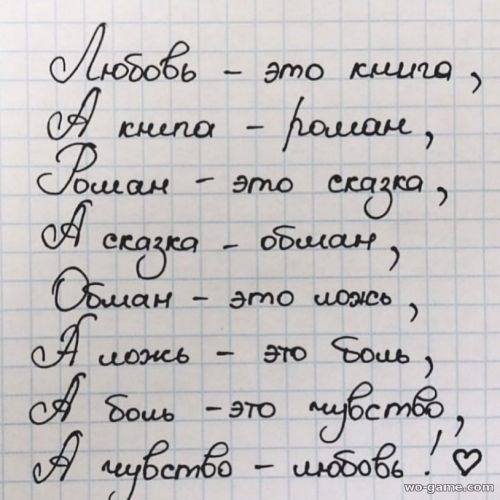 Любовь - это книга,
А книга - роман,
Роман - это сказка,
А сказка - обман,
Обман - это ложь,
А ложь - это боль,
А боль - это чувство,
А чувство - любовь! ♡
wo-game.com